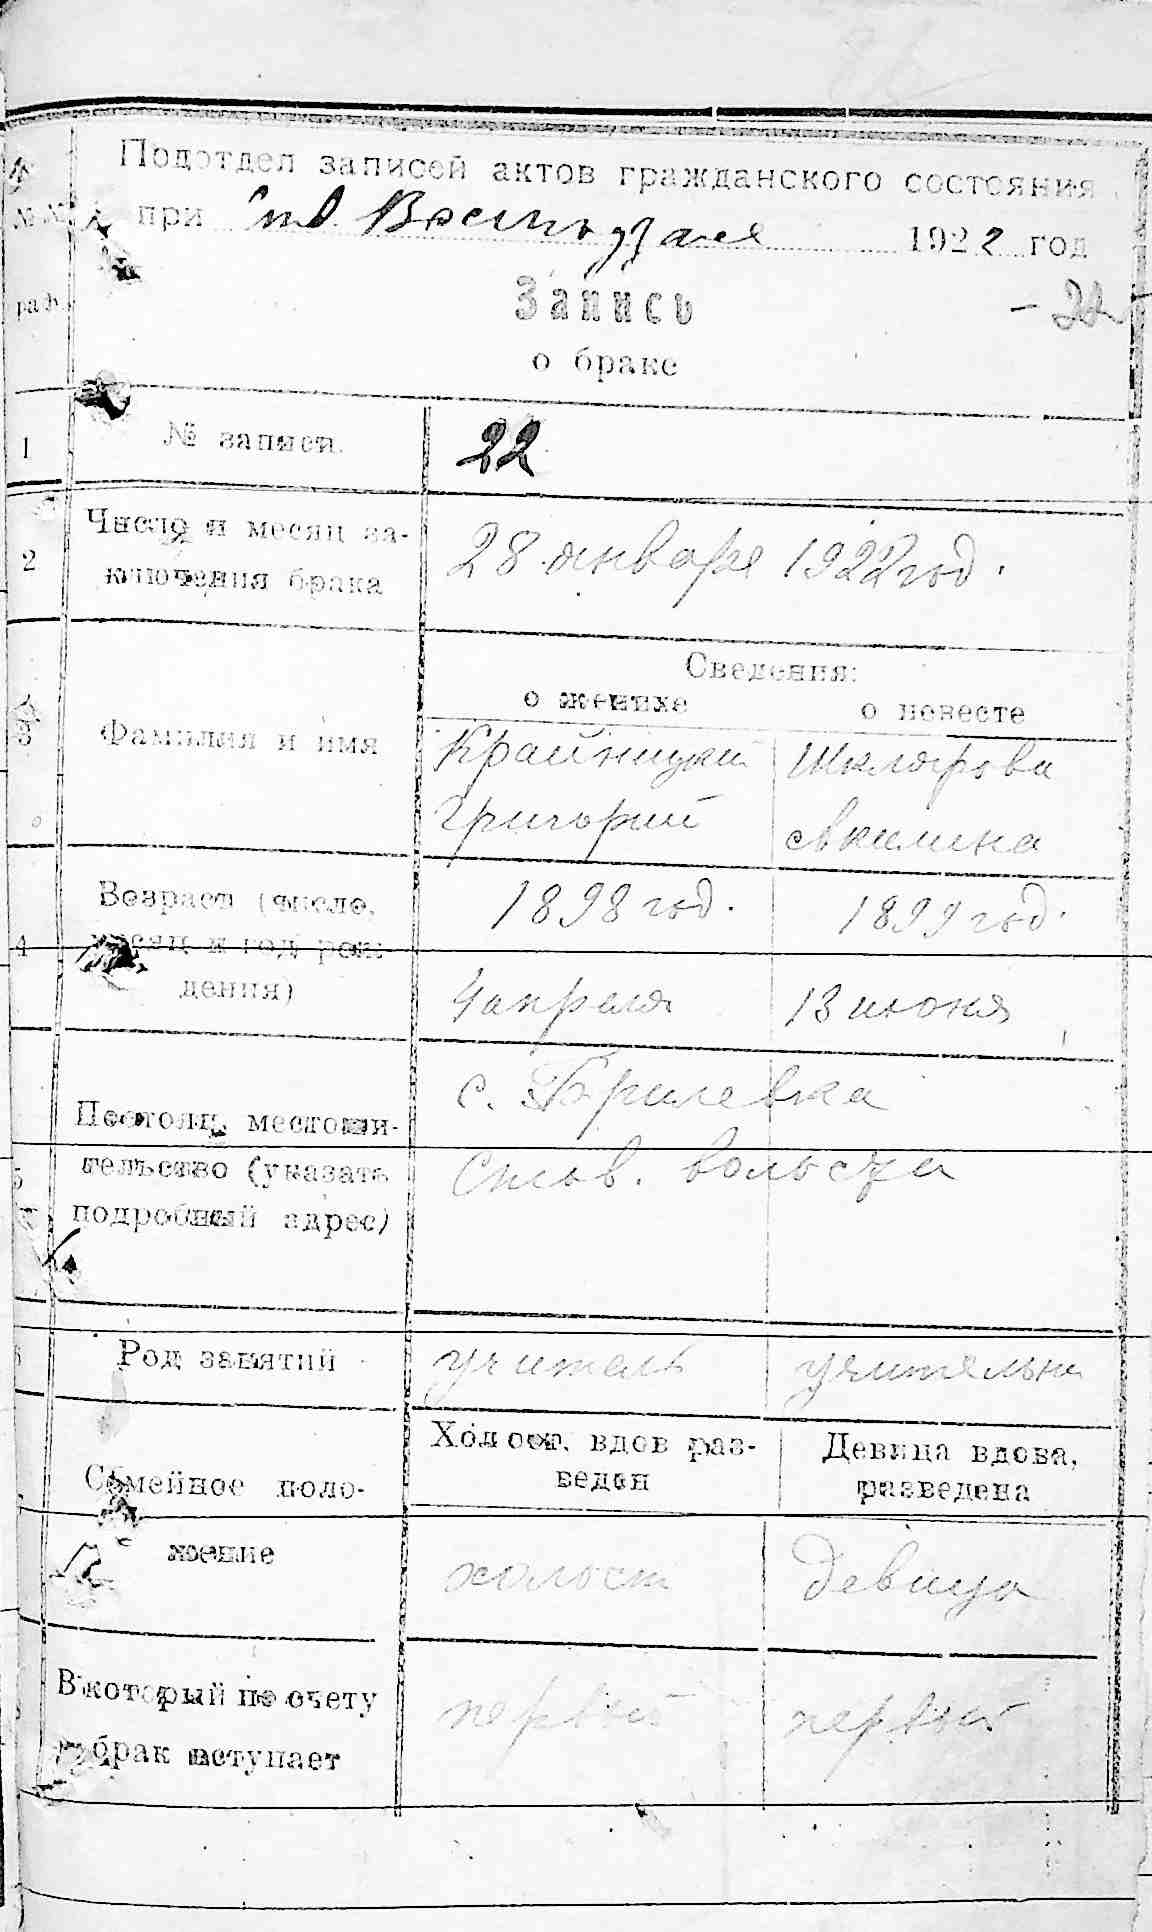 Подотдел записей актов гражданского состояния
при Ств. Волисдзаге 1922 год
Запись
о браке
- 22
№№
граф.
1 № записи. 22
2 Число и месяц за-
ключения брака 28 января 1922 год.
Сведения:
о женихе о невесте
3 Фамилия и имя Крайницкий
Григорий Шклярова
Акилина
4 Возраст (число,
месяц и год рож-
дения) 1898 год. 1899 год.
4 апреля 13 июня
5 Постоян. местожи-
тельство (указать
подробный адрес) с. Брилевка
Став. волости
6 Род занятий учитель учительн.
Семейное поло-
жение Холост, вдов раз-
веден Девица вдова,
разведена
холост девица
В который по счету
брак вступает первый первый